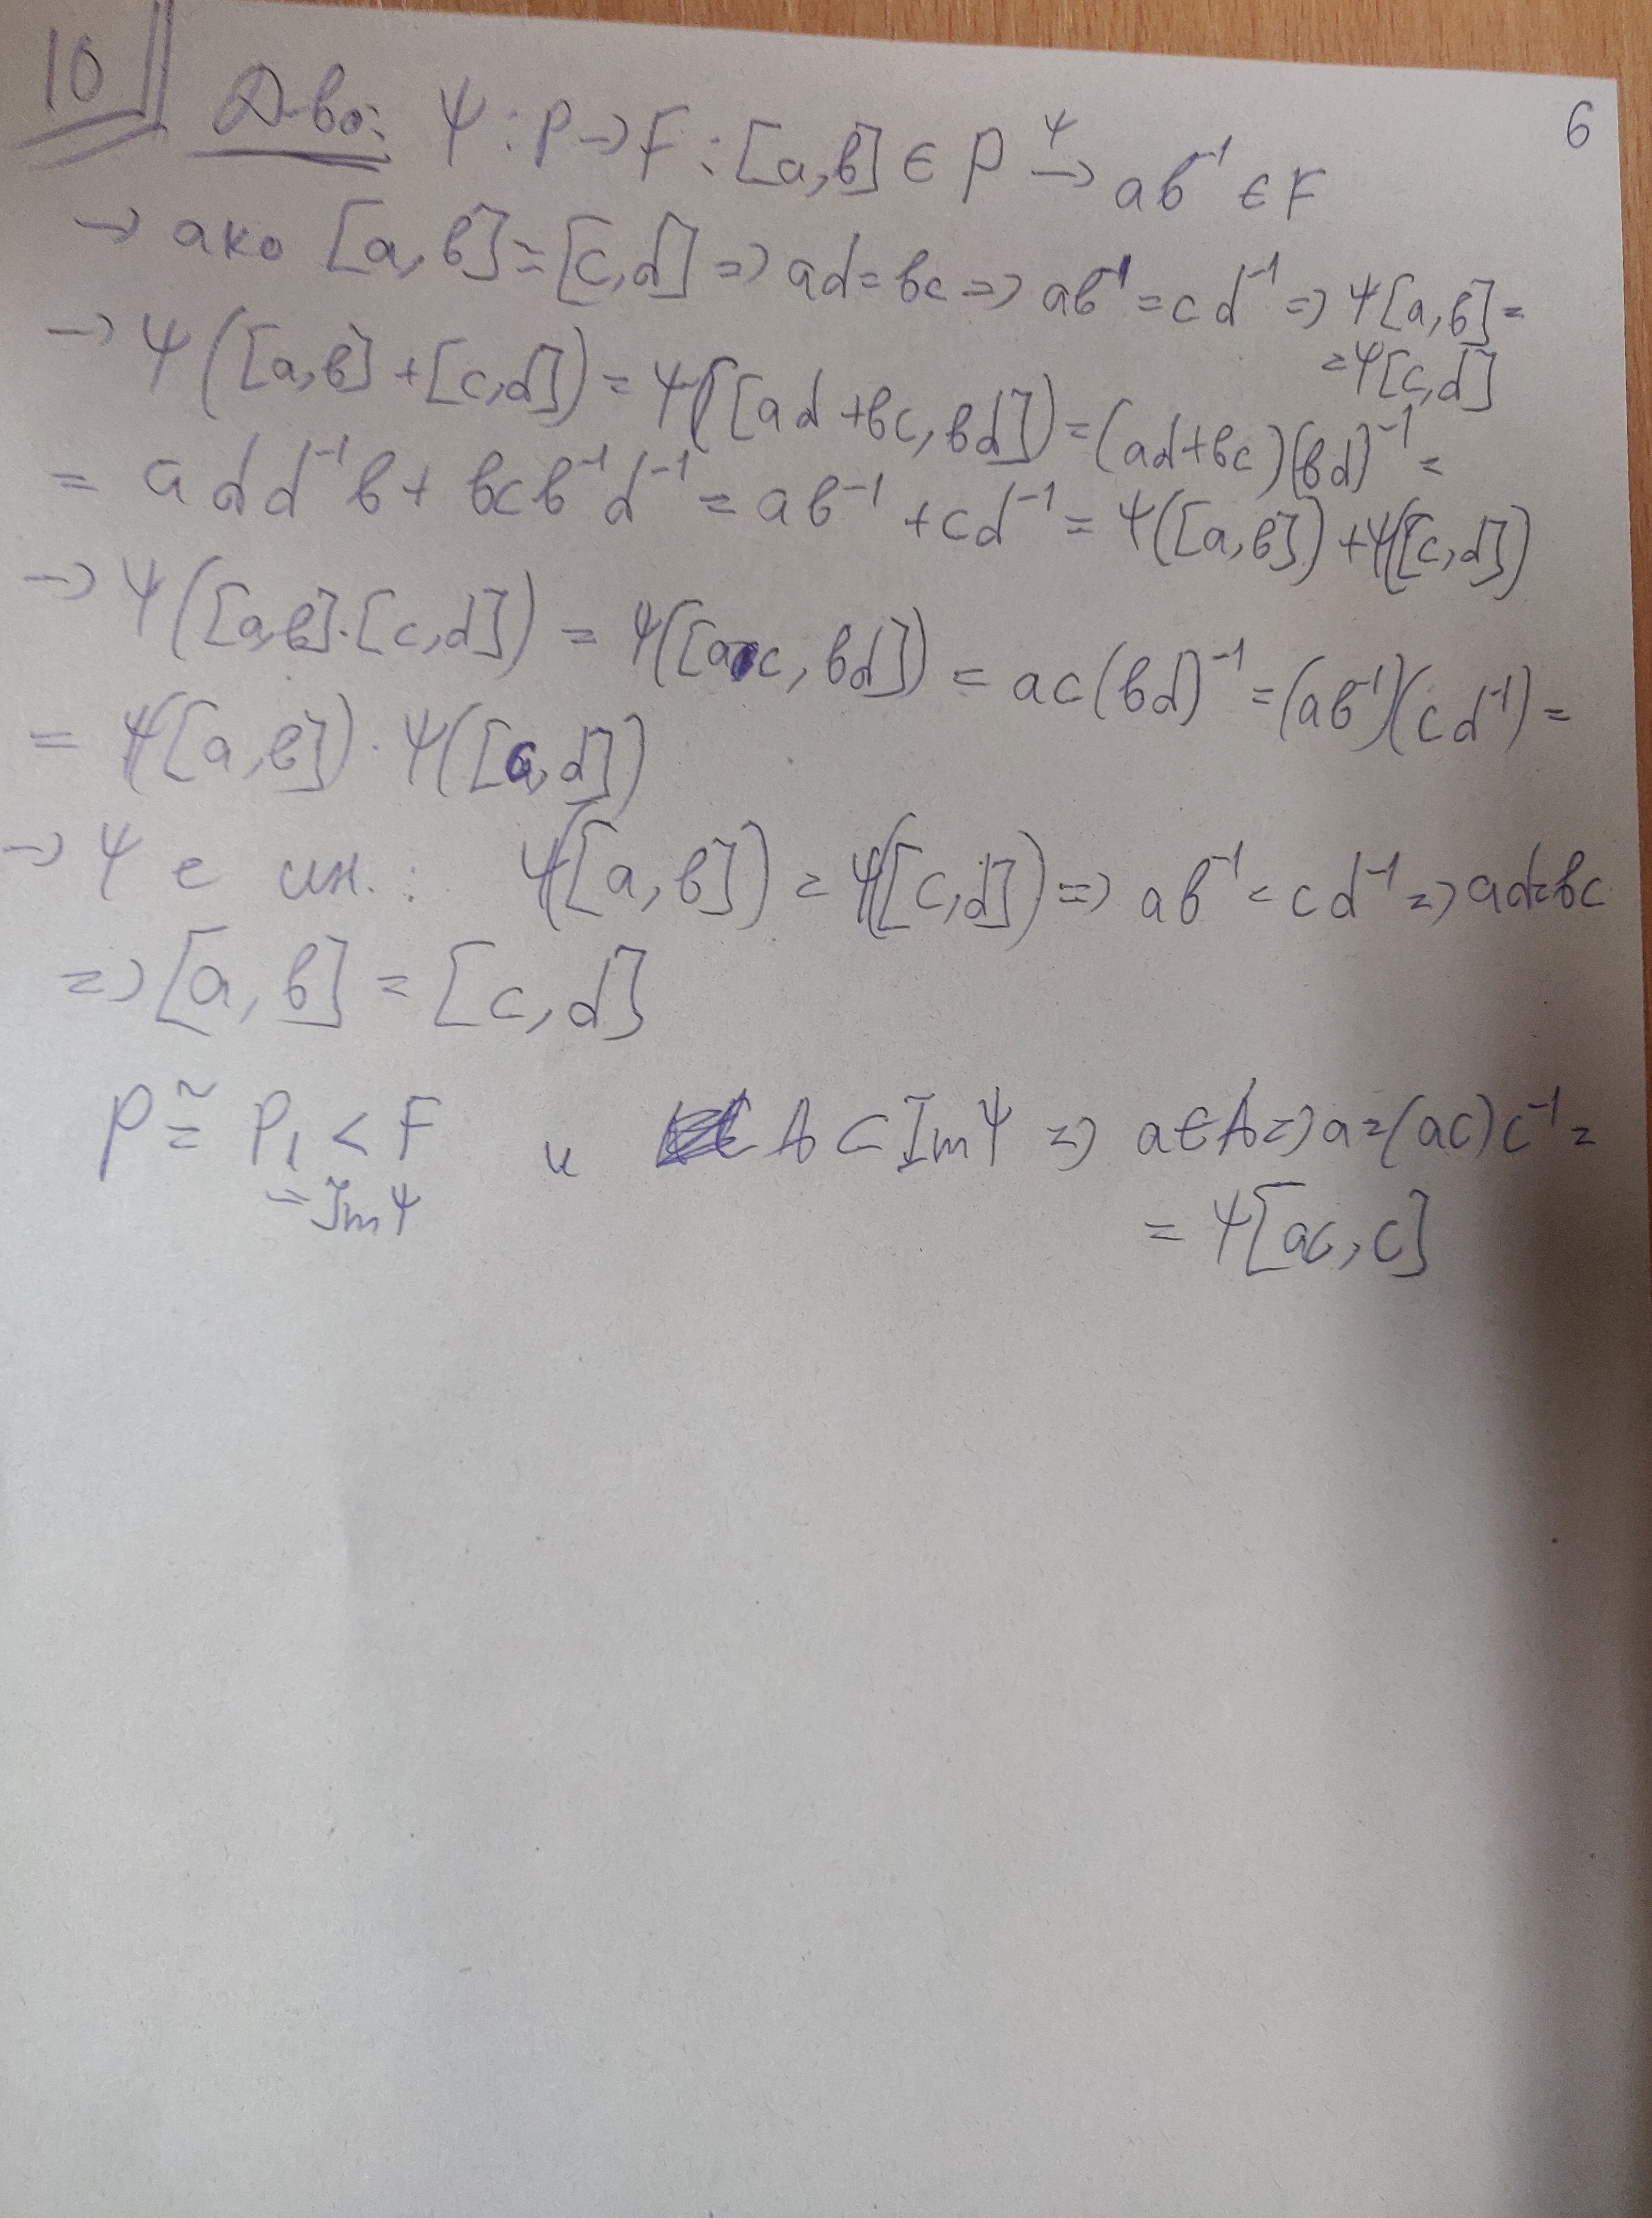 10 Д-во: Ψ : P → F : [a, b] ∈ P →^Ψ ab⁻¹ ∈ F 6
→ ако [a, b] = [c, d] => ad = bc => ab⁻¹ = cd⁻¹ => Ψ[a, b] =
= Ψ[c, d]
→ Ψ([a, b] + [c, d]) = Ψ([ad + bc, bd]) = (ad + bc)(bd)⁻¹ =
= add⁻¹b + bcb⁻¹d⁻¹ = ab⁻¹ + cd⁻¹ = Ψ([a, b]) + Ψ([c, d])
→ Ψ([a, b].[c, d]) = Ψ([ac, bd]) = ac(bd)⁻¹ = (ab⁻¹)(cd⁻¹) =
= Ψ([a, b]) . Ψ([c, d])
→ Ψ е ин. : Ψ([a, b]) = Ψ([c, d]) => ab⁻¹ = cd⁻¹ => ad = bc
=> [a, b] = [c, d]
P ≅ P₁ < F и A ⊂ Im Ψ => a ∈ A => a = (ac)c⁻¹ =
= Im Ψ = Ψ[ac, c]